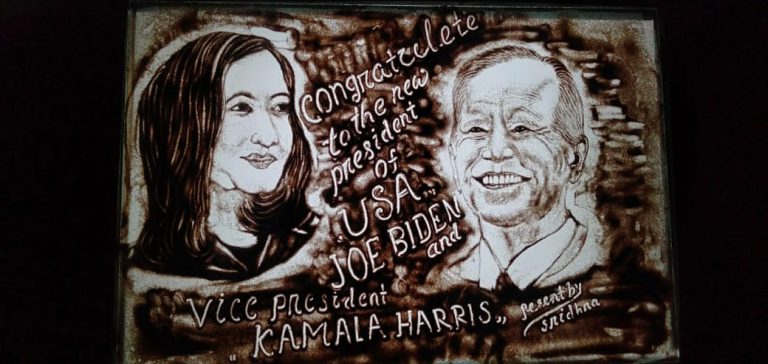 Congratulete
to the new
president
of
USA..
JOE BIDEN
and
Vice president
" KAMALA HARRIS.,,
Pesent by
sridhna